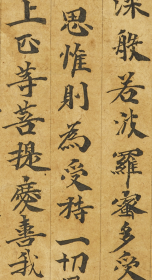 深般若波羅蜜多受
思惟則為受持一切
上正等菩提處善我